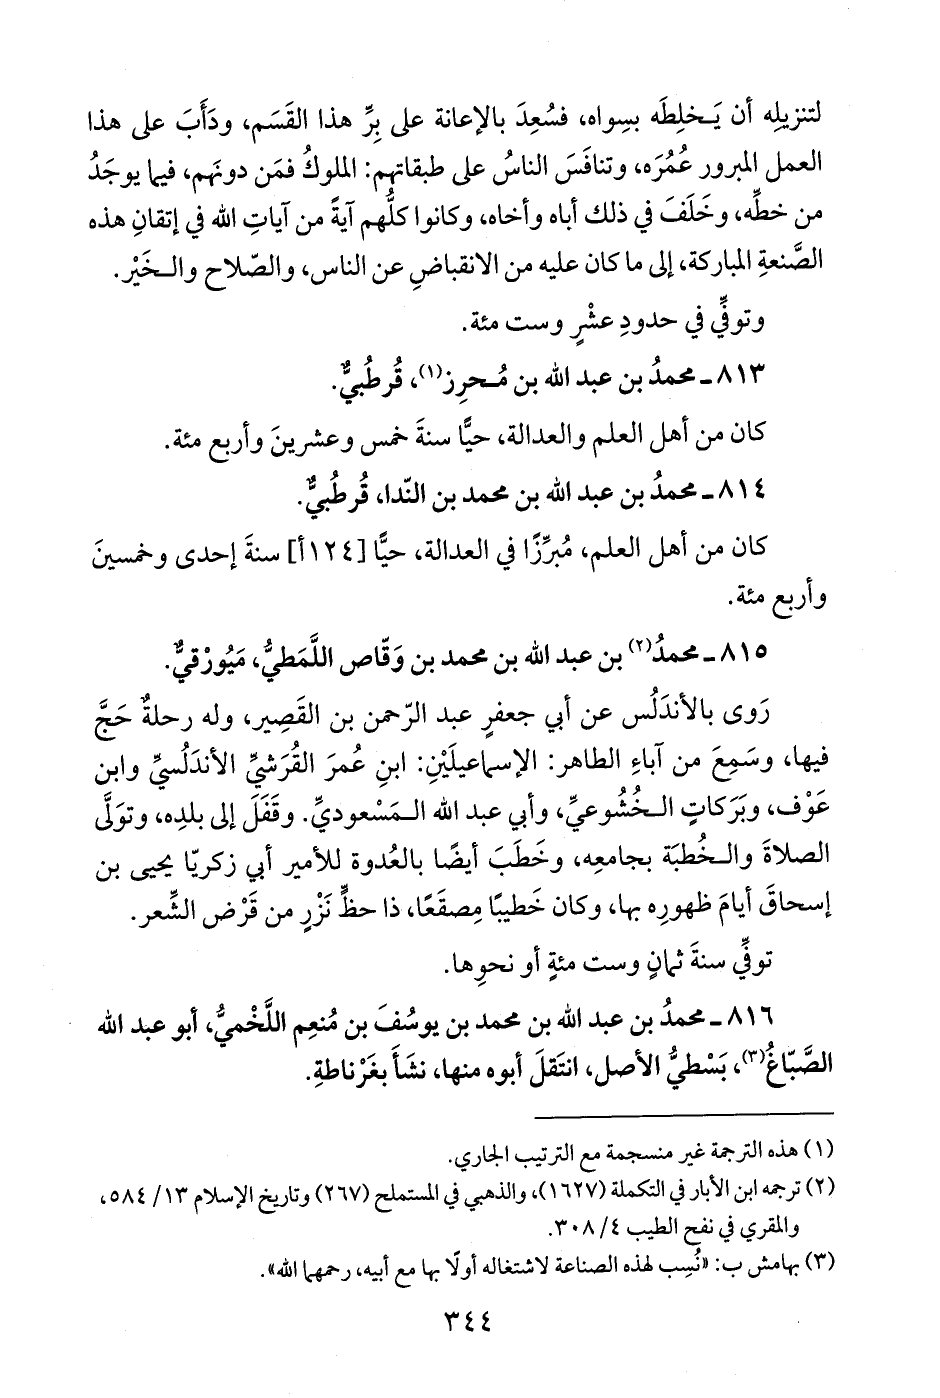 لتنزيلِه أن يَـخلِطَه بسِواه، فسُعِدَ بالإعانة على بِرِّ هذا القَسَم، ودَأَبَ على هذا
العملِ المبرور عُمُرَه، وتنافَسَ الناسُ على طبقاتِهم: الملوكُ فمَن دونَهم، فيما يوجَدُ
من خطِّه، وخَلَفَ في ذلك أباه وأخاه، وكانوا كلُّهم آيةً من آياتِ الله في إتقانِ هذه
الصَّنعةِ المباركة، إلى ما كان عليه من الانقباضِ عن الناس، والصّلاح والـخَيْر.
وتوفِّي في حدودِ عشْرٍ وست مئة.
٨١٣ ـ محمدُ بن عبد الله بن مُـحرِز(١)، قُرطُبيٌّ.
كان من أهل العلم والعدالة، حيًّا سنةَ خمس وعشرينَ وأربع مئة.
٨١٤ ـ محمدُ بن عبد الله بن محمد بن النّدا، قُرطُبيٌّ.
كان من أهل العلم، مُبرِّزًا في العدالة، حيًّا [١٢٤أ] سنةَ إحدى وخمسينَ
وأربع مئة.
٨١٥ ـ محمدُ(٢) بن عبد الله بن محمد بن وَقّاص اللَّمَطيُّ، مَيُورْقيٌّ.
رَوى بالأندَلُس عن أبي جعفرٍ عبد الرّحمن بن القَصِير، وله رحلةٌ حَجَّ
فيها، وسَمِعَ من آباءِ الطاهر: الإسماعيلَيْنِ: ابنِ عُمرَ القُرَشيِّ الأندَلُسيِّ وابن
عَوْف، وبَرَكاتٍ الـخُشُوعيِّ، وأبي عبد الله الـمَسْعوديِّ. وقَفَلَ إلى بلدِه، وتولَّى
الصلاةَ والـخُطبَة بجامعِه، وخَطَبَ أيضًا بالعُدوة للأمير أبي زكريّا يحيى بن
إسحاقَ أيامَ ظهورِه بها، وكان خَطيبًا مِصقَعًا، ذا حظٍّ نَزْرٍ من قَرْض الشِّعر.
توفِّي سنةَ ثمانٍ وست مئةٍ أو نحوِها.
٨١٦ ـ محمدُ بن عبد الله بن محمد بن يوسُفَ بن مُنعِم اللَّخْميُّ، أبو عبد الله
الصَّبّاغُ(٣)، بَسْطيُّ الأصل، انتَقلَ أبوه منها، نشَأَ بغَرْناطةِ.
(١) هذه الترجمة غير منسجمة مع الترتيب الجاري.
(٢) ترجمه ابن الأبار في التكملة (١٦٢٧)، والذهبي في المستملح (٢٦٧) وتاريخ الإسلام ١٣/ ٥٨٤،
والمقري في نفح الطيب ٤/ ٣٠٨.
(٣) بهامش ب: «نُسِب لهذه الصناعة لاشتغاله أولًا بها مع أبيه، رحمهما الله».
٣٤٤